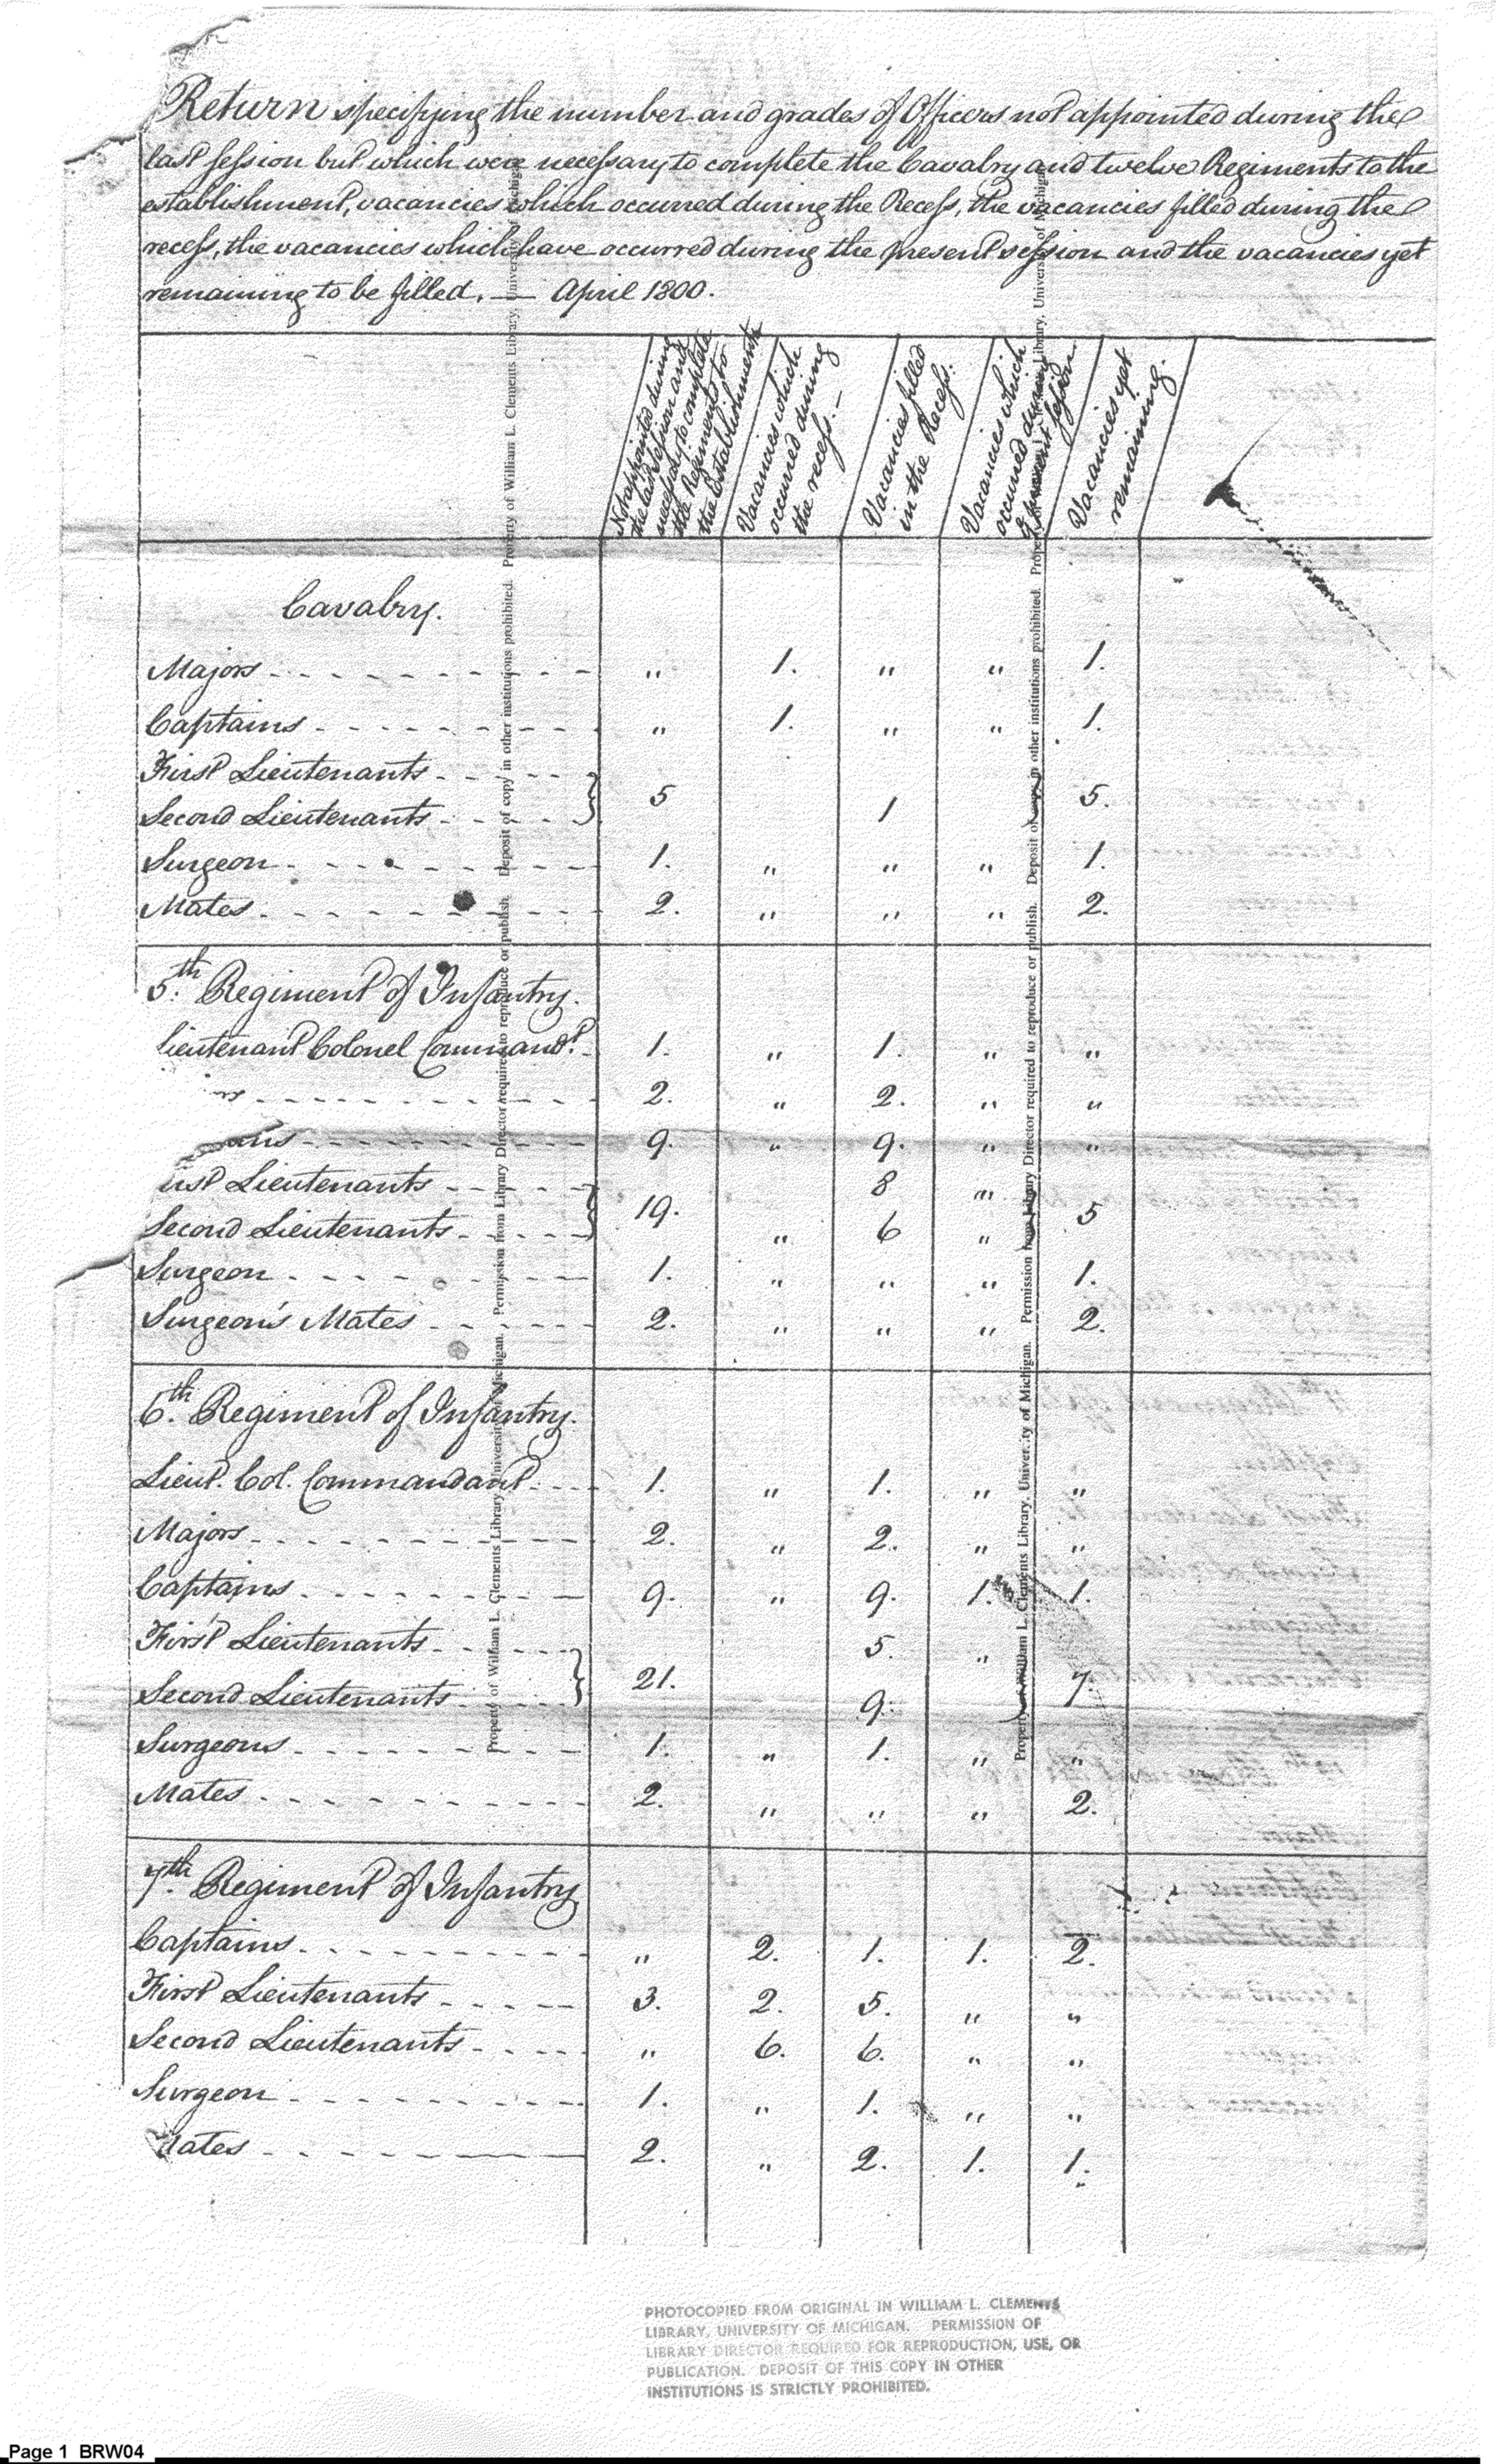 Return specifying the number and grades of Officers not appointed during the
last session but which were necessary to complete the Cavalry and twelve Regiments to the
establishment, vacancies which occurred during the Recess, the vacancies filled during the
recess, the vacancies which have occurred during the present session and the vacancies yet
remaining to be filled. — April 1800.
Not appointed during
the last session and
necessary to complete
the Regiments to
the Establishments
Vacancies which
occurred during
the recess. —
Vacancies filled
in the Recess.
Vacancies which
occurred during
present session
Vacancies yet
remaining.
Cavalry.
Majors - - - - - - - - - „ 1. „ „ 1.
Captains - - - - - - - - „ 1. „ „ 1.
First Lieutenants - - - -
Second Lieutenants - - - - } 5 1 } 5.
Surgeon - - - - - - - - 1. „ „ „ 1.
Mates - - - - - - - - 2. „ „ „ 2.
5.th Regiment of Infantry.
Lieutenant Colonel Command.t - 1. „ 1. „ „
rs - - - - - - - - - 2. „ 2. „ „
ains - - - - - - - - 9. „ 9. „ „
irst Lieutenants - - - - 8 „
Second Lieutenants - - - - } 19. „ 6 „ } 5
Surgeon - - - - - - - 1. „ „ „ 1.
Surgeon's Mates - - - - - 2. „ „ „ 2.
6.th Regiment of Infantry.
Lieut. Col. Commandant - - - 1. „ 1. „ „
Majors - - - - - - - - 2. „ 2. „ „
Captains - - - - - - - 9. „ 9. 1. 1.
First Lieutenants - - - - 5. „
Second Lieutenants - - - - } 21. 9. } 7.
Surgeons - - - - - - - 1. „ 1. „ „
Mates - - - - - - - - 2. „ „ „ 2.
7.th Regiment of Infantry
Captains - - - - - - - „ 2. 1. 1. 2.
First Lieutenants - - - - 3. 2. 5. „ „
Second Lieutenants - - - - „ 6. 6. „ „
Surgeon - - - - - - - 1. „ 1. „ „
Mates - - - - - - - - 2. „ 2. 1. 1.
Property of William L. Clements Library, University of Michigan. Permission from Library Director required to reproduce or publish. Deposit of copy in other institutions prohibited. Property of William L. Clements Library, University of Michigan.
Property of William L. Clements Library, University of Michigan. Permission from Library Director required to reproduce or publish. Deposit of copy in other institutions prohibited. Property of William L. Clements Library, University of Michigan
PHOTOCOPIED FROM ORIGINAL IN WILLIAM L. CLEMENTS
LIBRARY, UNIVERSITY OF MICHIGAN. PERMISSION OF
LIBRARY DIRECTOR REQUIRED FOR REPRODUCTION, USE, OR
PUBLICATION. DEPOSIT OF THIS COPY IN OTHER
INSTITUTIONS IS STRICTLY PROHIBITED.
Page 1 BRW04